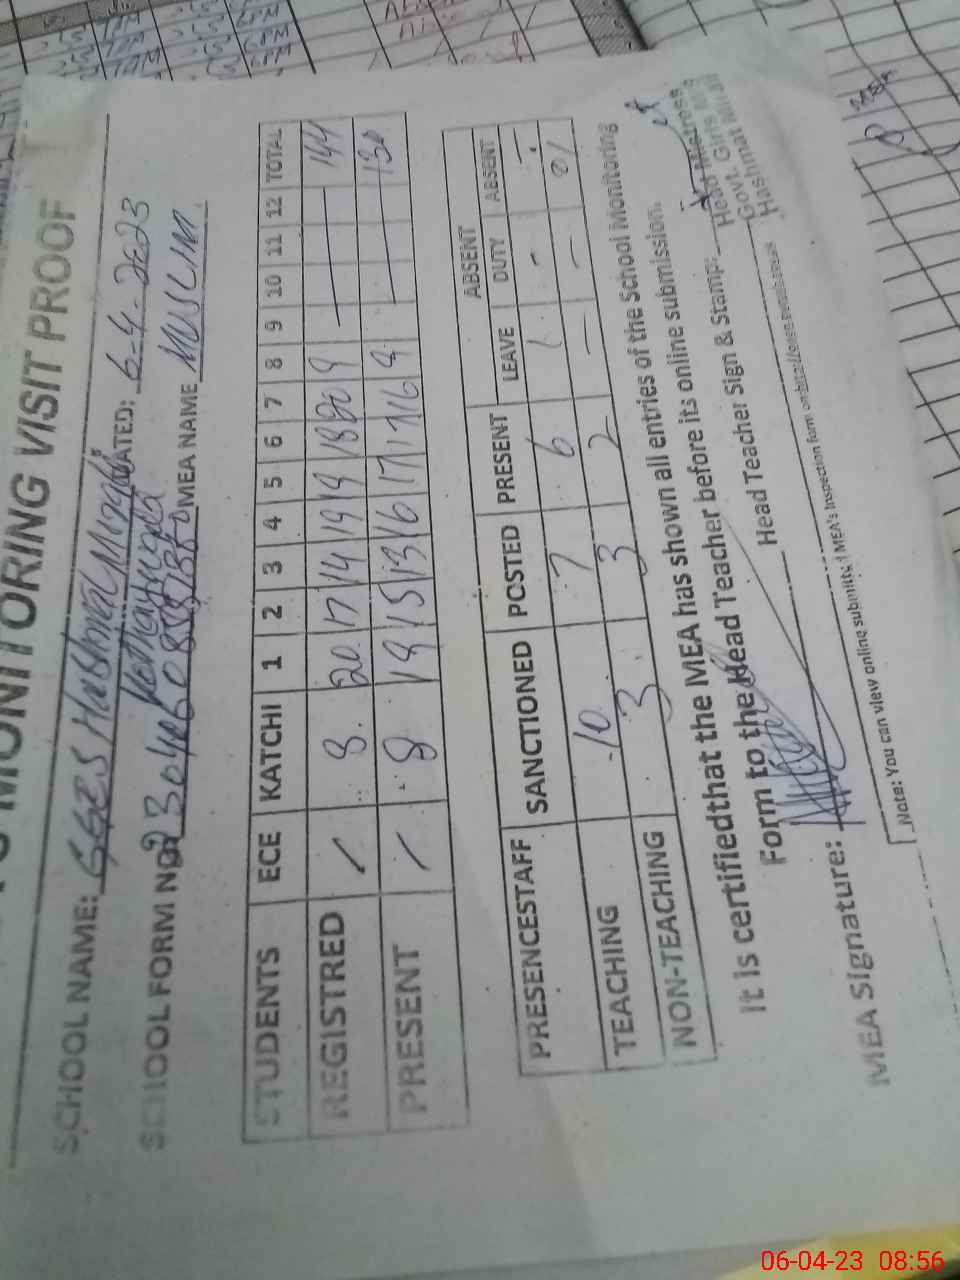 MONITORING VISIT PROOF
SCHOOL NAME: GGES Hashmat Mirali DATED: 6-4-2023
SCHOOL FORM NO. MEA NAME MUSLIM
STUDENTS ECE KATCHI 1 2 3 4 5 6 7 8 9 10 11 12 TOTAL
REGISTRED / 8 20 17 14 19 19 18 20 9 — 144
PRESENT / 8 19 15 13 16 17 17 16 9 — 130
PRESENCESTAFF SANCTIONED POSTED PRESENT ABSENT
LEAVE DUTY ABSENT
TEACHING 10 7 6 1 - -
NON-TEACHING 3 3 2 — — 01
It is certifiedthat the MEA has shown all entries of the School Monitoring
Form to the Head Teacher before its online submission.
MEA Signature: Head Teacher Sign & Stamp:
Head Mistress
Govt. Girls
Hashmat Mirali
Note: You can view online submitted MEA's Inspection form on
MEA
06-04-23 08:56